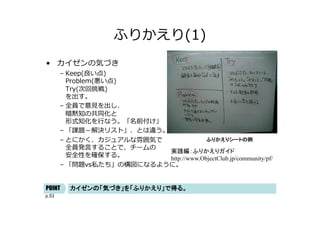 ふりかえり(1)
• カイゼンの気づき
– Keep(良い点)
Problem(悪い点)
Try(次回挑戦)
を出す。
– 全員で意見を出し、
暗黙知の共同化と
形式知化を行なう。「名前付け」
– 「課題－解決リスト」、とは違う。
– とにかく、カジュアルな雰囲気で
全員発言することで、チームの
安全性を確保する。
– 「問題vs私たち」の構図になるように。
Keep
Try
ふりかえりシートの例
実践編:ふりかえりガイド
http://www.ObjectClub.jp/community/pf/
POINT カイゼンの「気づき」を「ふりかえり」で得る。
p.53